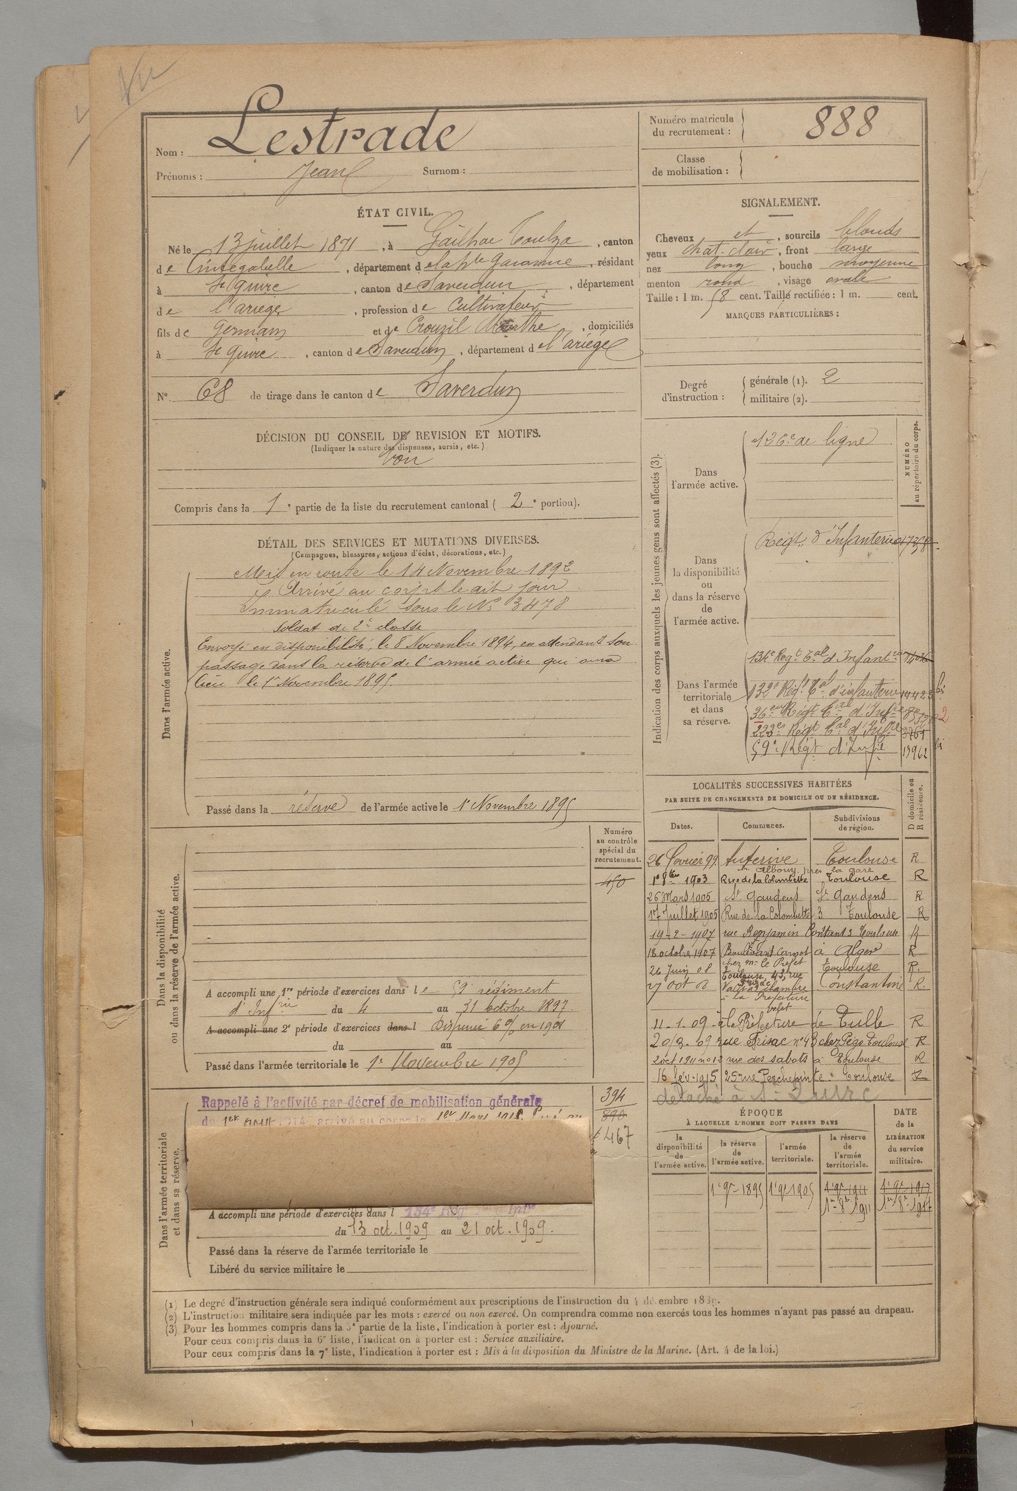 Vu
Nom : Lestrade
Prénoms : Jean Surnom :
Numéro matricule du recrutement : 888
Classe de mobilisation :
ÉTAT CIVIL.
Né le 13 juillet 1871, à Gailhac Toulza, canton
de Cintegabelle, département de la hte Garonne, résidant
à St Quirc, canton de Saverdun, département
de l'ariège, profession de Cultivateur
fils de Germain et de Crouzil Marthe, domiciliés
à St Quirc, canton de Saverdun, département de l'ariége
SIGNALEMENT.
Cheveux et, sourcils blonds
yeux chat. clair, front large
nez long, bouche moyenne
menton rond, visage ovale
Taille : 1 m. 58 cent. Taille rectifiée : 1 m. cent.
MARQUES PARTICULIÈRES :
N° 68 de tirage dans le canton de Saverdun
Degré d'instruction : générale (1). 2
militaire (2).
DÉCISION DU CONSEIL DE REVISION ET MOTIFS.
(Indiquer la nature des dispenses, sursis, etc.)
Bon
Compris dans la 1e partie de la liste du recrutement cantonal (2e portion).
DÉTAIL DES SERVICES ET MUTATIONS DIVERSES.
(Campagnes, blessures, actions d'éclat, décorations, etc.)
Dans l'armée active.
Mis en route le 14 Novembre 1892
Arrivé au corps le dit jour
Immatriculé sous le No 3478
soldat de 2e classe
Envoyé en disponibilité, le 8 Novembre 1894, en attendant son
passage dans la réserve de l'armée active qui aura
lieu le 1er Novembre 1895
Passé dans la réserve de l'armée active le 1r Novembre 1895
Indication des corps auxquels les jeunes gens sont affectés (3).
NUMÉRO au répertoire du corps.
Dans l'armée active.
136e de ligne
Dans la disponibilité ou dans la réserve de l'armée active.
Régt d'Infanterie
Dans l'armée territoriale et dans sa réserve.
134e Régt Tal d'Infanterie
132e Régt Tal d'infanterie 14423
36e Régt Tal d'Infie
223e Régt Tal d'Infie
59e Régt d'Infie 13962
Numéro au contrôle spécial du recrutement.
450
Dans la disponibilité ou dans la réserve de l'armée active.
A accompli une 1re période d'exercices dans le 59e régiment
d'Infrie du 4 au 31 octobre 1897
A accompli une 2e période d'exercices dans l Dispensé en 1901
du au
Passé dans l'armée territoriale le 1r Novembre 1905
LOCALITÉS SUCCESSIVES HABITÉES
PAR SUITE DE CHANGEMENTS DE DOMICILE OU DE RÉSIDENCE.
D domicile ou R résidence.
Dates. Communes. Subdivisions de région.
26 février 99 Auterive Toulouse R
près la gare
1903 Rue de la Colombette Toulouse R
26 Mars 1905 St Gaudens St Gaudens R
17 Juillet 1905 Rue de la Colombette 3 Toulouse R
19-2-1907 rue Benjamin Constant 3 Toulouse R
18 octobre 1907 Boulevard Carnot à Alger R
chez Mr le Préfet
26 Juin 08 Toulouse, 43, rue Toulouse R
Constantine R
à la Préfecture
11-1-09 à la Préfecture de Tulle R
rue Frisac n°43 Toulouse R
rue des sabots à Toulouse R
16 fév. 1915 25 rue Perchepinte à Toulouse
détaché à St Quirc
Dans l'armée territoriale et dans sa réserve.
394
467
Rappelé à l'activité par décret de mobilisation générale
du 1er août 1914, arrivé au corps le 1er Mars 1915.
A accompli une période d'exercices dans l 134e
du 13 oct. 1909 au 21 oct. 1909.
Passé dans la réserve de l'armée territoriale le
Libéré du service militaire le
ÉPOQUE
À LAQUELLE L'HOMME DOIT PASSER DANS
DATE de la LIBÉRATION du service militaire.
la disponibilité de l'armée active. la réserve de l'armée active. l'armée territoriale. la réserve de l'armée territoriale.
1r 9r 1895 1r 9r 1905
(1) Le degré d'instruction générale sera indiqué conformément aux prescriptions de l'instruction du 4 décembre
(2) L'instruction militaire sera indiquée par les mots : exercé ou non exercé. On comprendra comme non exercés tous les hommes n'ayant pas passé au drapeau.
(3) Pour les hommes compris dans la 5e partie de la liste, l'indication à porter est : Ajourné.
Pour ceux compris dans la 6e liste, l'indication à porter est : Service auxiliaire.
Pour ceux compris dans la 7e liste, l'indication à porter est : Mis à la disposition du Ministre de la Marine. (Art. 4 de la loi.)